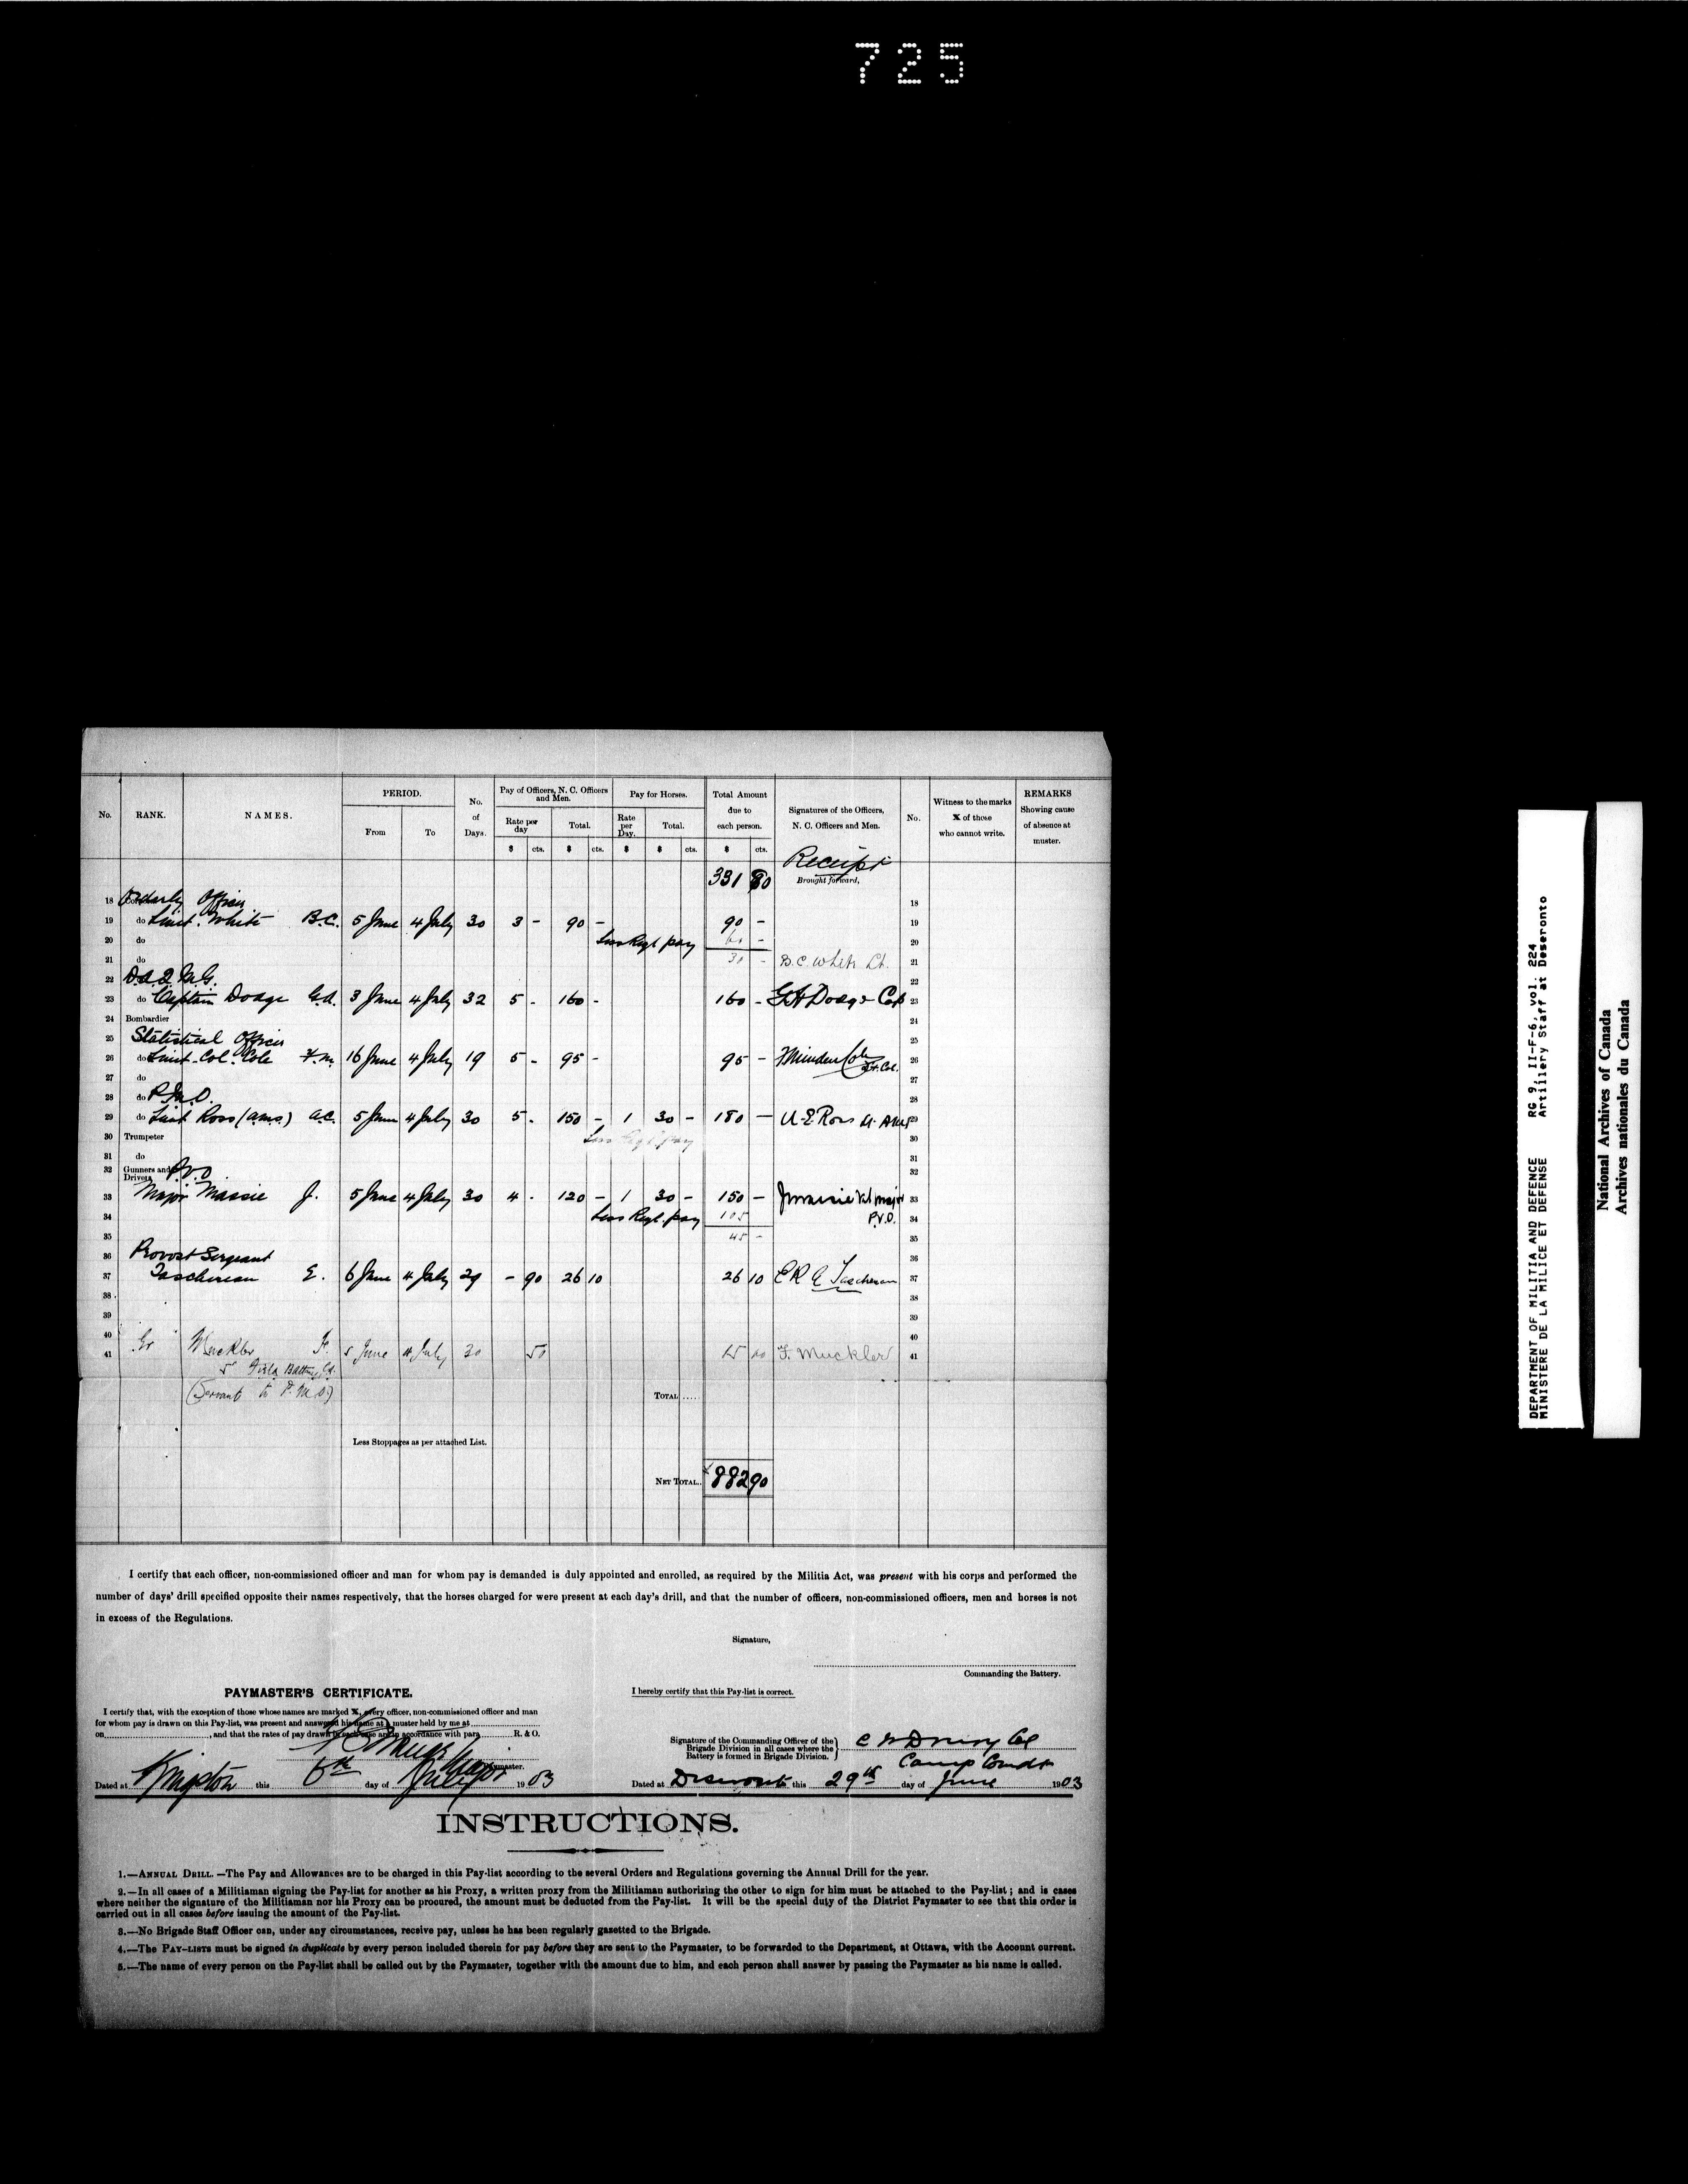 725
No. RANK. NAMES. PERIOD. From To No. of Days. Pay of Officers, N. C. Officers and Men. Rate per day $ cts. Total. $ cts. Pay for Horses. Rate per Day. $ Total. $ cts. Total Amount due to each person. $ cts. Signatures of the Officers, N. C. Officers and Men. No. Witness to the marks X of those who cannot write. REMARKS Showing cause of absence at muster.
Receipt
331 80 Brought forward,
18 Orderly Officer 18
19 do Lieut. White B.C. 5 June 4 July 30 3 - 90 - 90 - 19
20 do Less Regl pay 60 - 20
21 do 30 - B.C. White Lt. 21
22 D.A.Q.M.G. 22
23 do Captain Dodge G.A. 3 June 4 July 32 5 - 160 - 160 - GA Dodge Cap 23
24 Bombardier 24
25 Statistical Officer 25
26 do Lieut. Col. Cole F.M. 16 June 4 July 19 5 - 95 - 95 - F Minden Cole Lt. Col. 26
27 do 27
28 do P.M.O. 28
29 do Lieut Ross (A.M.S.) A.E. 5 June 4 July 30 5 - 150 - 1 30 - 180 - A.E Ross 29
30 Trumpeter Less Regl pay 30
31 do 31
32 Gunners and Drivers P.V.O 32
33 Major Massie J. 5 June 4 July 30 4 - 120 - 1 30 - 150 - J Massie Vet Major 33
34 Less Regl. pay 105 P.V.O. 34
35 45 - 35
36 Provost Sergeant 36
37 Taschereau E. 6 June 4 July 29 - 90 26 10 26 10 E R A Taschereau 37
38 38
39 39
40 40
41 Gr Muckler F. 5 June 4 July 30 50 15 00 F. Muckler 41
5" Field Battery C.A.
(Servant to P.M.O.)
TOTAL....
Less Stoppages as per attached List.
NET TOTAL. 882 90
I certify that each officer, non-commissioned officer and man for whom pay is demanded is duly appointed and enrolled, as required by the Militia Act, was present with his corps and performed the
number of days' drill specified opposite their names respectively, that the horses charged for were present at each day's drill, and that the number of officers, non-commissioned officers, men and horses is not
in excess of the Regulations.
Signature,
Commanding the Battery.
PAYMASTER'S CERTIFICATE.
I certify that, with the exception of those whose names are marked X, every officer, non-commissioned officer and man
for whom pay is drawn on this Pay-list, was present and answered his name at a muster held by me at
on , and that the rates of pay drawn in each case are in accordance with para R. & O.
Paymaster.
Dated at Kingston this 6th day of July 1903
I hereby certify that this Pay-list is correct.
Signature of the Commanding Officer of the Brigade Division in all cases where the Battery is formed in Brigade Division. } C W Drury Col
Camp Comdt
Dated at Deseronto this 29th day of June 1903
INSTRUCTIONS.
1.—ANNUAL DRILL.—The Pay and Allowances are to be charged in this Pay-list according to the several Orders and Regulations governing the Annual Drill for the year.
2.—In all cases of a Militiaman signing the Pay-list for another as his Proxy, a written proxy from the Militiaman authorizing the other to sign for him must be attached to the Pay-list; and is cases
where neither the signature of the Militiaman nor his Proxy can be procured, the amount must be deducted from the Pay-list. It will be the special duty of the District Paymaster to see that this order is
carried out in all cases before issuing the amount of the Pay-list.
3.—No Brigade Staff Officer can, under any circumstances, receive pay, unless he has been regularly gazetted to the Brigade.
4.—The PAY-LISTS must be signed in duplicate by every person included therein for pay before they are sent to the Paymaster, to be forwarded to the Department, at Ottawa, with the Account current.
5.—The name of every person on the Pay-list shall be called out by the Paymaster, together with the amount due to him, and each person shall answer by passing the Paymaster as his name is called.
DEPARTMENT OF MILITIA AND DEFENCE RG 9, II-F-6, vol. 224
MINISTERE DE LA MILICE ET DEFENSE Artillery Staff at Deseronto
National Archives of Canada
Archives nationales du Canada